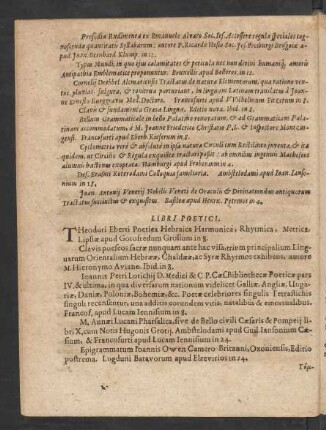 Prosodia Rudimenta ex Emanuele Alvaro Soc. Jes. Accessere regulæ speciales cog-
noscendæ quantitatis Syllabarum: autore P. Ricardo Soc. Jes. Friburgi Brisgoiæ a-
pud Joan. Bernhard in 12.
Typus Mundi, in quo ejus calamitates & pericula nec non divini humaniq́, amoris
Antipathia Emblematice proponuntur. Bruxellis apud in 12.
Cornelij Drebbel Alcmariensis Tractatus de natura Elementorum, quo ratione ven-
ti, pluviæ, fulgura, & tonitrua pariuntur, in linguam Latinam translatus à Joan-
ne Ernesto Burggravio Med. Doctore. Francofurti apud in 8.
Clavis & fundamenta Græcæ Linguæ. Editio nova. Ibid. in 12.
Bellum Grammaticale in bello Palatino renovatum, & ad Grammaticam Pala-
tinam accommodatum, à M. Joanne Christiani P. L. & Inspectore
Francofurti apud in 8.
Cyclometria vera & absoluta in ipsa natura Circuli cum Rectilineo inventa, & ita
quidem, ut Circulo & Regula exquisite tractari possit: ab omnibus ingenuis Mathesios
alumnis hactenus exoptata. Hamburg apud in 4.
Des. Erasmi Roterodami Colloquia familiaria. Amstelodami apud Joan. Jans-
sonium in 12.
Joan. Antonij Venerij Nobilis Veneti de Oraculis & Divinationibus antiquorum
Tractatus succinctus & exquisitus. Basileæ apud Henric. Petrum in 4.
LIBRI POETICI.
THeodori Eberti Poetica Hebraica Harmonica, Rhytmica, Metrica
Lipsiæ apud Gotofredum Grossium in 8.
Clavis poëseos sacræ nunquam ante hac visæ, trium principalium Lin-
guarum Orientalium Hebrææ, Chaldææ, ac Syræ Rhytmos exhibens, autore
M. Hieronymo Aviano. Ibid. 8.
Ioannis Petri Lotichij D. Medici & C. P. Cæs. Bibliothecæ Poëticæ pars
IV. & ultima, in qua diversarum nationum videlicet Galliæ, Angliæ, Unga-
riæ, Daniæ, Poloniæ, Bohemiæ, &c. Poëtæ celebriores singulis Tetrastichis
singuli recensentur, non addita eorundem vita, natalibus & emortualibus.
Francof. apud Lucam Iennisium in 8.
M. Annæi Lucani Pharsalica, sive de Bello civili Cæsaris & Pompeij li-
bri X. cum Notis Hugonis Grotij. Ambstelodami apud Guil. Iansonium Cæ-
sium, & Francofurti apud Lucam Iennisium in 24.
Epigrammatum Ioannis Owen Cambro-Britanni, Oxoniensis, Editio
postrema. Lugduni Batavorum apud Elzevirios in 24.